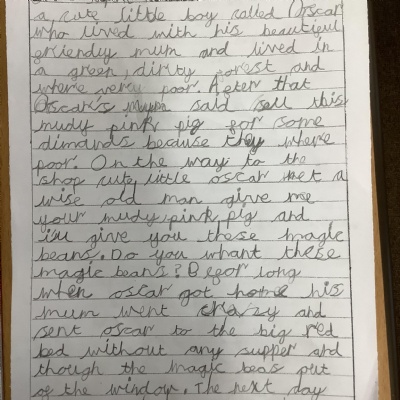 a cute little boy called Oscar
who lived with his beautiful
friendly mum and lived in
a green, dirty forest and
where very poor. After that
Oscar's mum said sell this
mudy pink pig for some
dimands because they where
poor. On the way to the
shop cute, little oscar met a
wise old man give me
your mudy, pink, pig and
i'u give you these magic
beans. Do you whant these
magic beans? Befor long
when oscar got home his
mum went crazy and
sent oscar to the big red
bed without any supper and
though the magic beas put
of the window. The next day